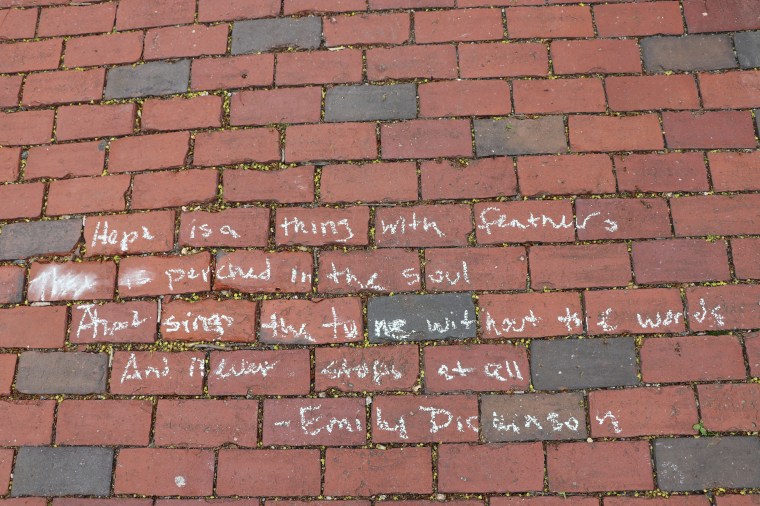 Hope is a thing with feathers
is perched in the soul
And sings the tune without the words
And never stops at all
-Emily Dickinson